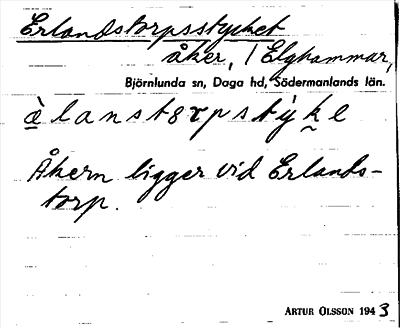 Erlandstorpsstycket
åker, / Elghammar,
Björnlunda sn, Daga hd, Södermanlands län.
æ̀ l a n s t ɞ r p s t ẏ k̬ e
Åkern ligger vid Erlands-
torp.
ARTUR OLSSON 1943